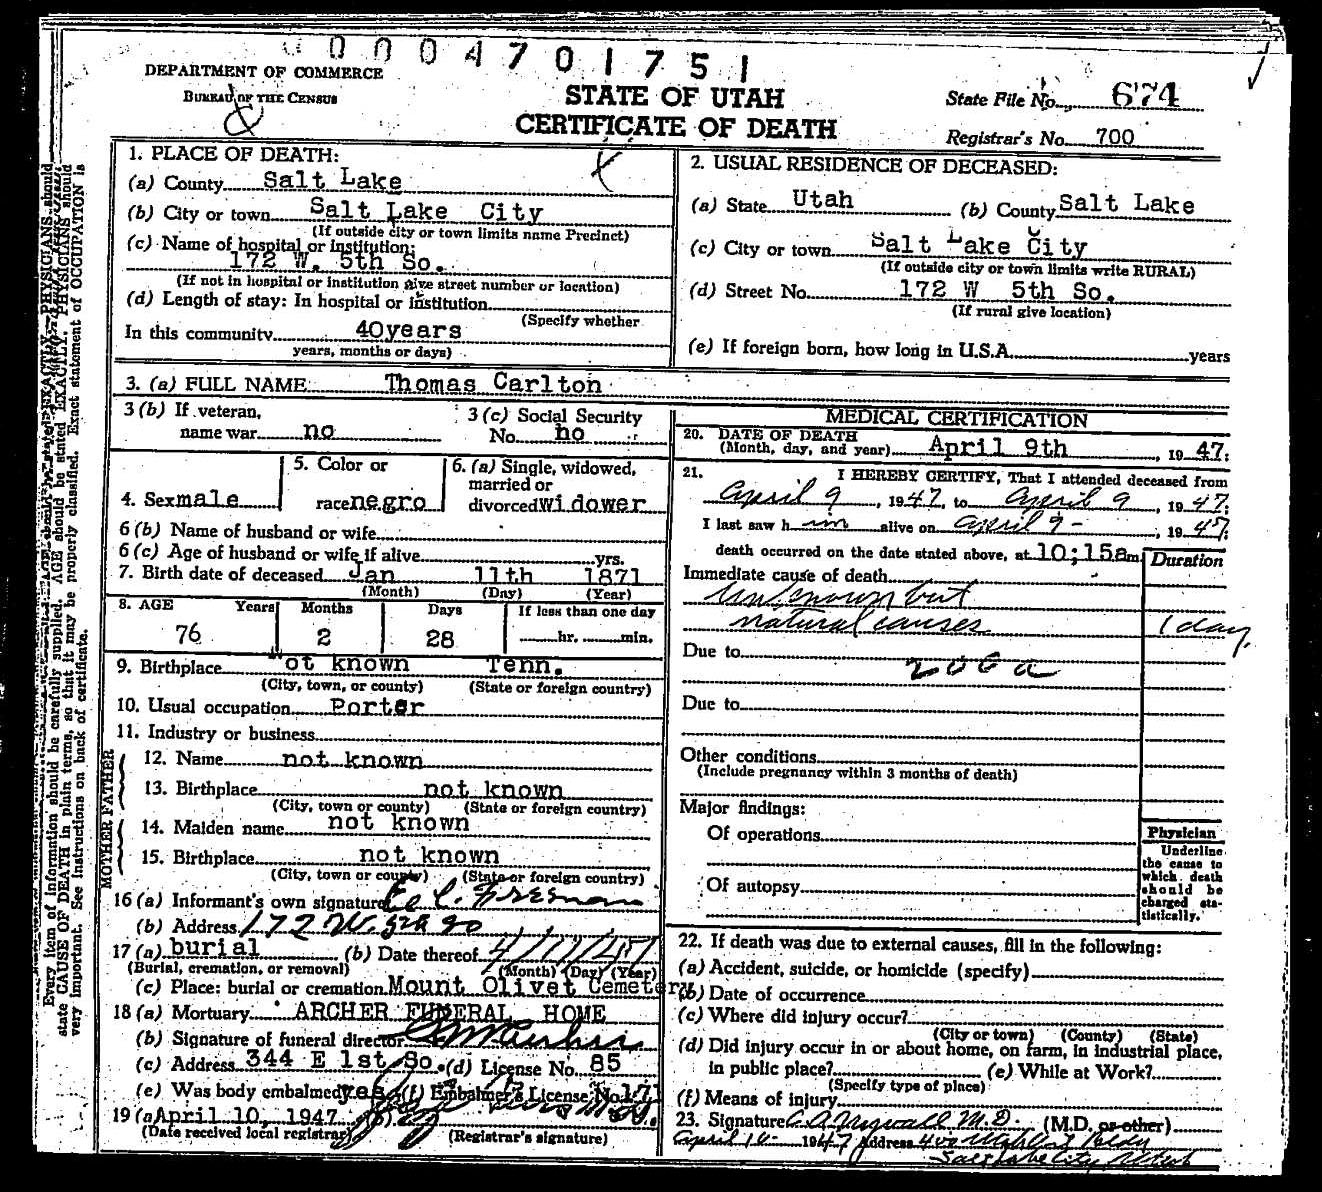 0004701751
DEPARTMENT OF COMMERCE
BUREAU OF THE CENSUS
STATE OF UTAH
CERTIFICATE OF DEATH
State File No. 674
Registrar's No. 700
1. PLACE OF DEATH:
(a) County Salt Lake
(b) City or town Salt Lake City
(If outside city or town limits name Precinct)
(c) Name of hospital or institution:
172 W. 5th So.
(If not in hospital or institution give street number or location)
(d) Length of stay: In hospital or institution
(Specify whether
In this community 40years
years, months or days)
2. USUAL RESIDENCE OF DECEASED:
(a) State Utah (b) County Salt Lake
(c) City or town Salt Lake City
(If outside city or town limits write RURAL)
(d) Street No. 172 W 5th So.
(If rural give location)
(e) If foreign born, how long in U.S.A. years
3. (a) FULL NAME Thomas Carlton
3 (b) If veteran, name war no
3 (c) Social Security No. no
4. Sex male
5. Color or race negro
6. (a) Single, widowed, married or divorced widower
6 (b) Name of husband or wife
6 (c) Age of husband or wife if alive yrs.
7. Birth date of deceased Jan 11th 1871
(Month) (Day) (Year)
8. AGE Years Months Days If less than one day
76 2 28 hr. min.
9. Birthplace Not known Tenn.
(City, town, or county) (State or foreign country)
10. Usual occupation Porter
11. Industry or business
FATHER
12. Name not known
13. Birthplace not known
(City, town or county) (State or foreign country)
MOTHER
14. Maiden name not known
15. Birthplace not known
(City, town or county) (State or foreign country)
16 (a) Informant's own signature
(b) Address 172 W. 5th So
17 (a) burial (b) Date thereof 4/11/47
(Burial, cremation, or removal) (Month) (Day) (Year)
(c) Place: burial or cremation Mount Olivet Cemetery
18 (a) Mortuary ARCHER FUNERAL HOME
(b) Signature of funeral director
(c) Address 344 E 1st So. (d) License No. 85
(e) Was body embalmed yes (f) Embalmer's License No. 171
19 (a) April 10, 1947 (b)
(Date received local registrar) (Registrar's signature)
MEDICAL CERTIFICATION
20. DATE OF DEATH
(Month, day, and year) April 9th, 1947.
21. I HEREBY CERTIFY, That I attended deceased from
April 9, 1947, to April 9, 1947.
I last saw him alive on April 9 -, 1947.
death occurred on the date stated above, at 10;15am
Duration
Immediate cause of death
Unknown but
natural causes 1 day.
Due to
200a
Due to
Other conditions
(Include pregnancy within 3 months of death)
Major findings:
Of operations
Of autopsy
Physician
Underline
the cause to
which death
should be
charged sta-
tistically.
22. If death was due to external causes, fill in the following:
(a) Accident, suicide, or homicide (specify)
(b) Date of occurrence
(c) Where did injury occur?
(City or town) (County) (State)
(d) Did injury occur in or about home, on farm, in industrial place,
in public place? (e) While at Work?
(Specify type of place)
(f) Means of injury
23. Signature M.D. (M.D. or other)
April 1947 Address
Salt Lake City
Every item of information should be carefully supplied. AGE should be stated EXACTLY. PHYSICIANS should
state CAUSE OF DEATH in plain terms, so that it may be properly classified. Exact statement of OCCUPATION is
very important. See instructions on back of certificate.